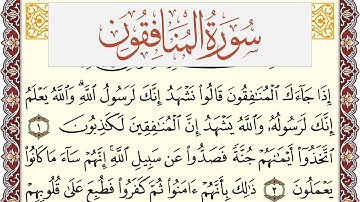 سُورَةُ المُنَافِقُونَ
إِذَا جَآءَكَ ٱلْمُنَٰفِقُونَ قَالُوا۟ نَشْهَدُ إِنَّكَ لَرَسُولُ ٱللَّهِ ۗ وَٱللَّهُ يَعْلَمُ
إِنَّكَ لَرَسُولُهُۥ وَٱللَّهُ يَشْهَدُ إِنَّ ٱلْمُنَٰفِقِينَ لَكَٰذِبُونَ ١
ٱتَّخَذُوٓا۟ أَيْمَٰنَهُمْ جُنَّةً فَصَدُّوا۟ عَن سَبِيلِ ٱللَّهِ ۚ إِنَّهُمْ سَآءَ مَا كَانُوا۟
يَعْمَلُونَ ٢ ذَٰلِكَ بِأَنَّهُمْ ءَامَنُوا۟ ثُمَّ كَفَرُوا۟ فَطُبِعَ عَلَىٰ قُلُوبِهِمْ